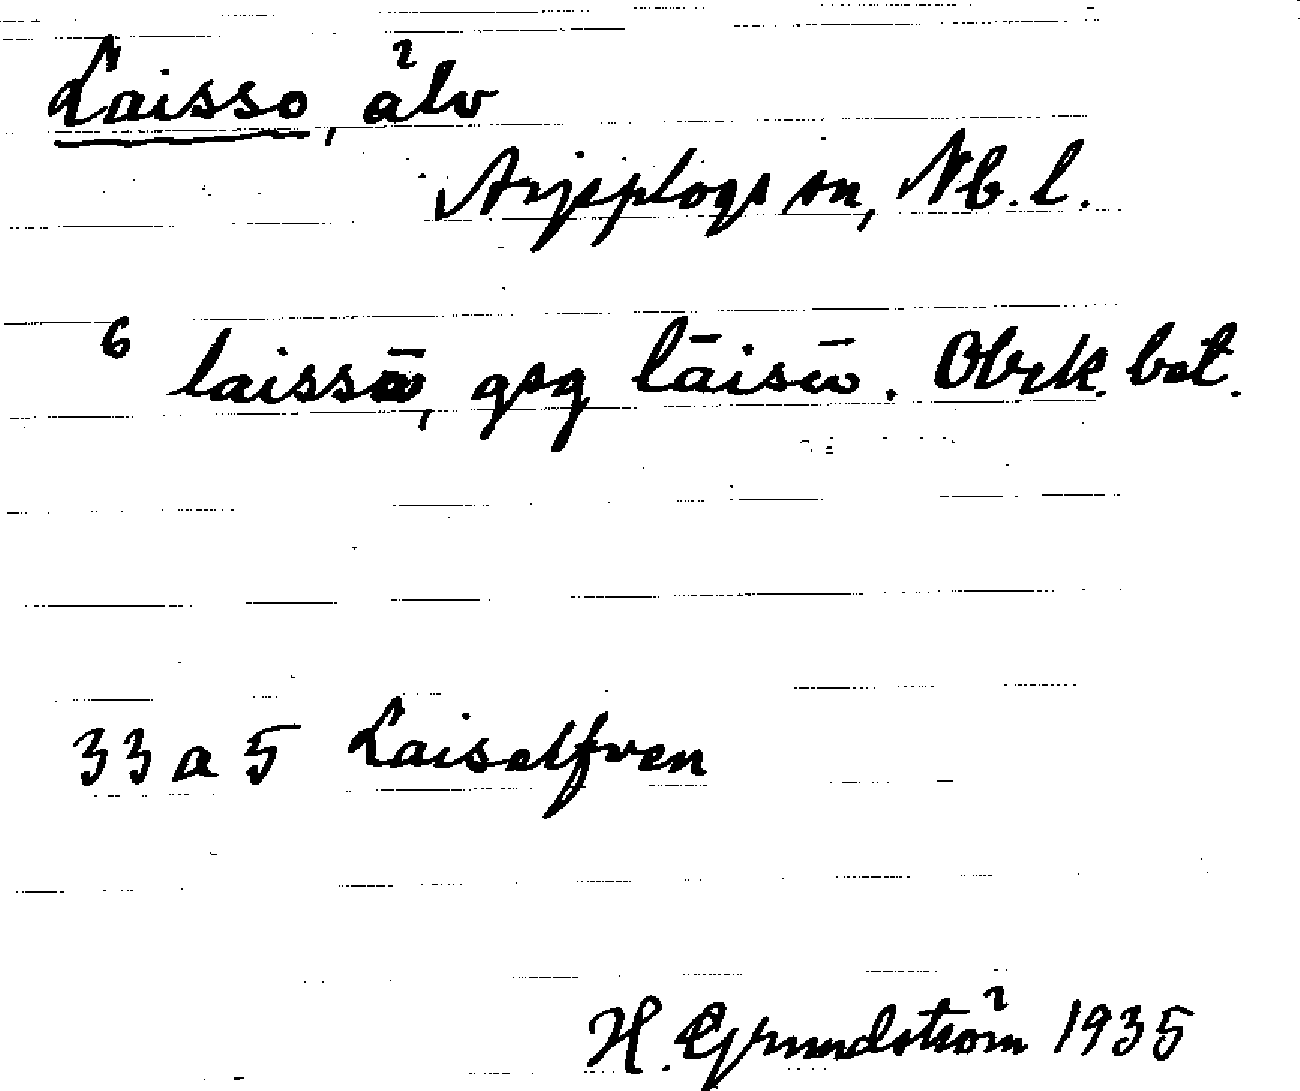 Laisso, älv
Arjeplogs sn, Nb. l.
6 laissō̄, gsg lāisō̄. Obrk. bet.
33 a 5 Laiselfven
H. Grundström 1935